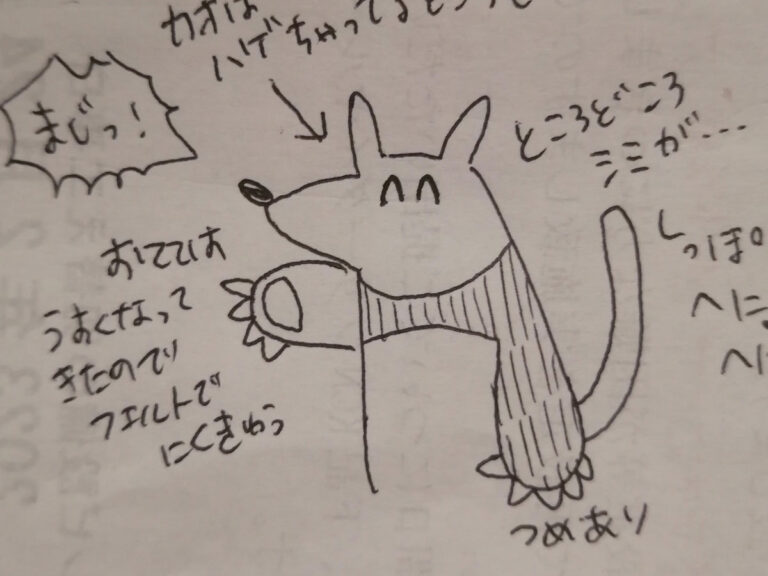 カオは
ハゲちゃってる
まじっ!
ところどころ
シミが…
しっぽ
へに
へに
おてては
うすくなって
きたので
フェルトで
にくきゅう
つめあり